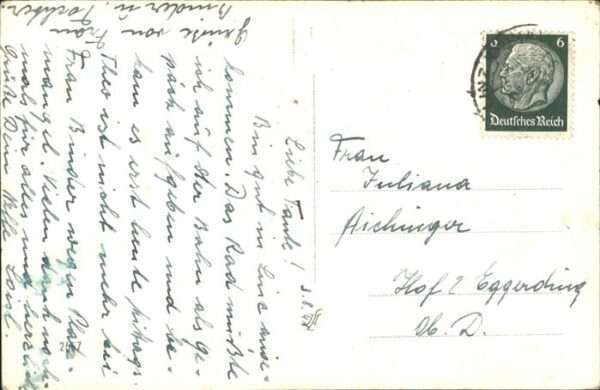 Liebe Tante!
Bin gut in Linz ange-
kommen. Das Rad mußte
ich auf der Bahn als Ge-
päck aufgeben und be-
kam es erst heute mittags.
Theo ist nicht mehr bei
Frau Binder wegen Platz-
mangel. Vielen Dank noch-
mals für alles und herzlich
Grüße von Frau
Binder u. Tochter
6 6
Deutsches Reich
Frau
Juliana
Aichinger
Hof 2 Eggerding
Ob. D.